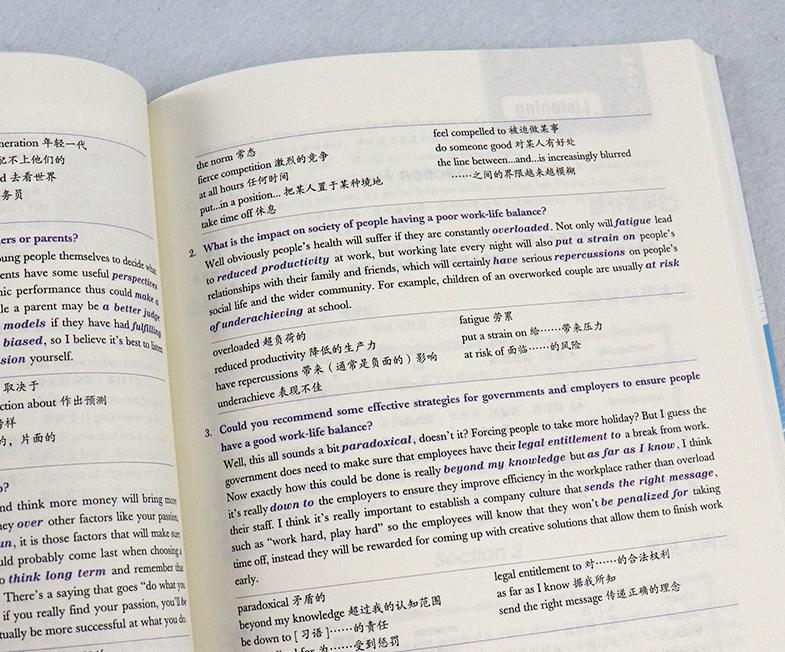 neration 年轻一代
配不上他们的
d 去看世界
务员
ers or parents?
oung people themselves to decide what
ents have some useful perspectives
nic performance thus could make a
le a parent may be a better judge
models if they have had fulfilling
biased, so I believe it's best to listen
sion yourself.
取决于
ction about 作出预测
榜样
的，片面的
o?
nd think more money will bring more
ney over other factors like your passion,
un, it is those factors that will make
uld probably come last when choosing a
o think long term and remember that
There's a saying that goes "do what you
if you really find your passion, you'll be
tually be more successful at what you do.
Listening
the norm 常态
fierce competition 激烈的竞争
at all hours 任何时间
put...in a position... 把某人置于某种境地
take time off 休息
feel compelled to 被迫做某事
do someone good 对某人有好处
the line between...and...is increasingly blurred
……之间的界限越来越模糊
2. What is the impact on society of people having a poor work-life balance?
Well obviously people's health will suffer if they are constantly overloaded. Not only will fatigue lead
to reduced productivity at work, but working late every night will also put a strain on people's
relationships with their family and friends, which will certainly have serious repercussions on people's
social life and the wider community. For example, children of an overworked couple are usually at risk
of underachieving at school.
overloaded 超负荷的
reduced productivity 降低的生产力
have repercussions 带来（通常是负面的）影响
underachieve 表现不佳
fatigue 劳累
put a strain on 给……带来压力
at risk of 面临……的风险
3. Could you recommend some effective strategies for governments and employers to ensure people
have a good work-life balance?
Well, this all sounds a bit paradoxical, doesn't it? Forcing people to take more holiday? But I guess the
government does need to make sure that employees have their legal entitlement to a break from work.
Now exactly how this could be done is really beyond my knowledge but as far as I know, I think
it's really down to the employers to ensure they improve efficiency in the workplace rather than overload
their staff. I think it's really important to establish a company culture that sends the right message,
such as "work hard, play hard" so the employees will know that they won't be penalized for taking
time off, instead they will be rewarded for coming up with creative solutions that allow them to finish work
early.
Section 2
paradoxical 矛盾的
beyond my knowledge 超过我的认知范围
be down to [习语]……的责任
for 为……受到惩罚
legal entitlement to 对……的合法权利
as far as I know 据我所知
send the right message 传递正确的理念